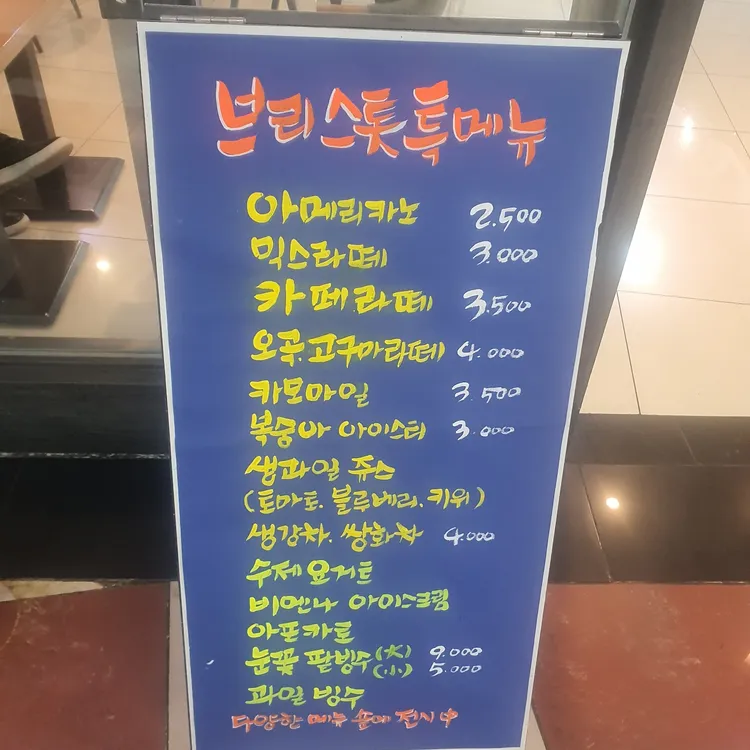 브리스톳 특메뉴
아메리카노 2.500
믹스라떼 3.000
카페라떼 3.500
오곡.고구마라떼 4.000
카모마일 3.500
복숭아 아이스티 3.000
생과일 쥬스
(토마토.블루베리.키위)
생강차.쌍화차 4.000
수제요거트
비엔나 아이스크림
아포카토
눈꽃 팥빙수(大) 9.000
(小) 5.000
과일 빙수
다양한 메뉴 숍에 전시中